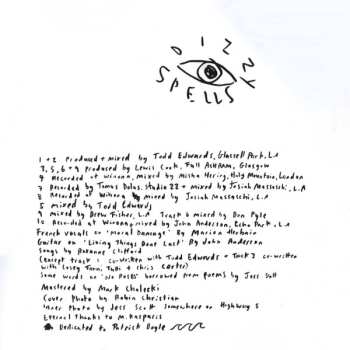 DIZZY
SPELLS
1 + 2 Produced + mixed by Todd Edwards, Glassell Park, L.A
3, 5, 6 + 9 Produced by Lewis Cook, Full Ashram, Glasgow
4 Recorded at Winona, mixed by Misha Hering, Holy Mountain, London
7 Recorded by Tomas Dolas, Studio 22 + mixed by Josiah Massaschi, L.A
8 Recorded at Winona mixed by Josiah Massaschi, L.A
5 mixed by Todd Edwards
9 mixed by Drew Fisher, L.A Track 6 mixed by Don Pyle
10 Recorded at Winona, mixed by John Anderson, Echo Park, L.A
French vocals on 'Moral Damage' By Marina
Guitar on 'Living Things Don't Last' By John Anderson
Songs by Roxanne Clifford
(except track 1 co-written with Todd Edwards + Track 3 co-written
with Lesey Tarn, Tutti + Chris Carter)
Some words on 'Six Roses' borrowed from poems by Jess Soll
Mastered by Mark Chalecki
Cover Photo by Robin Christian
Inner Photo by Jess Scott Somewhere on Highway 5
Eternal Thanks to M. Kasparis
Dedicated to Patrick Doyle